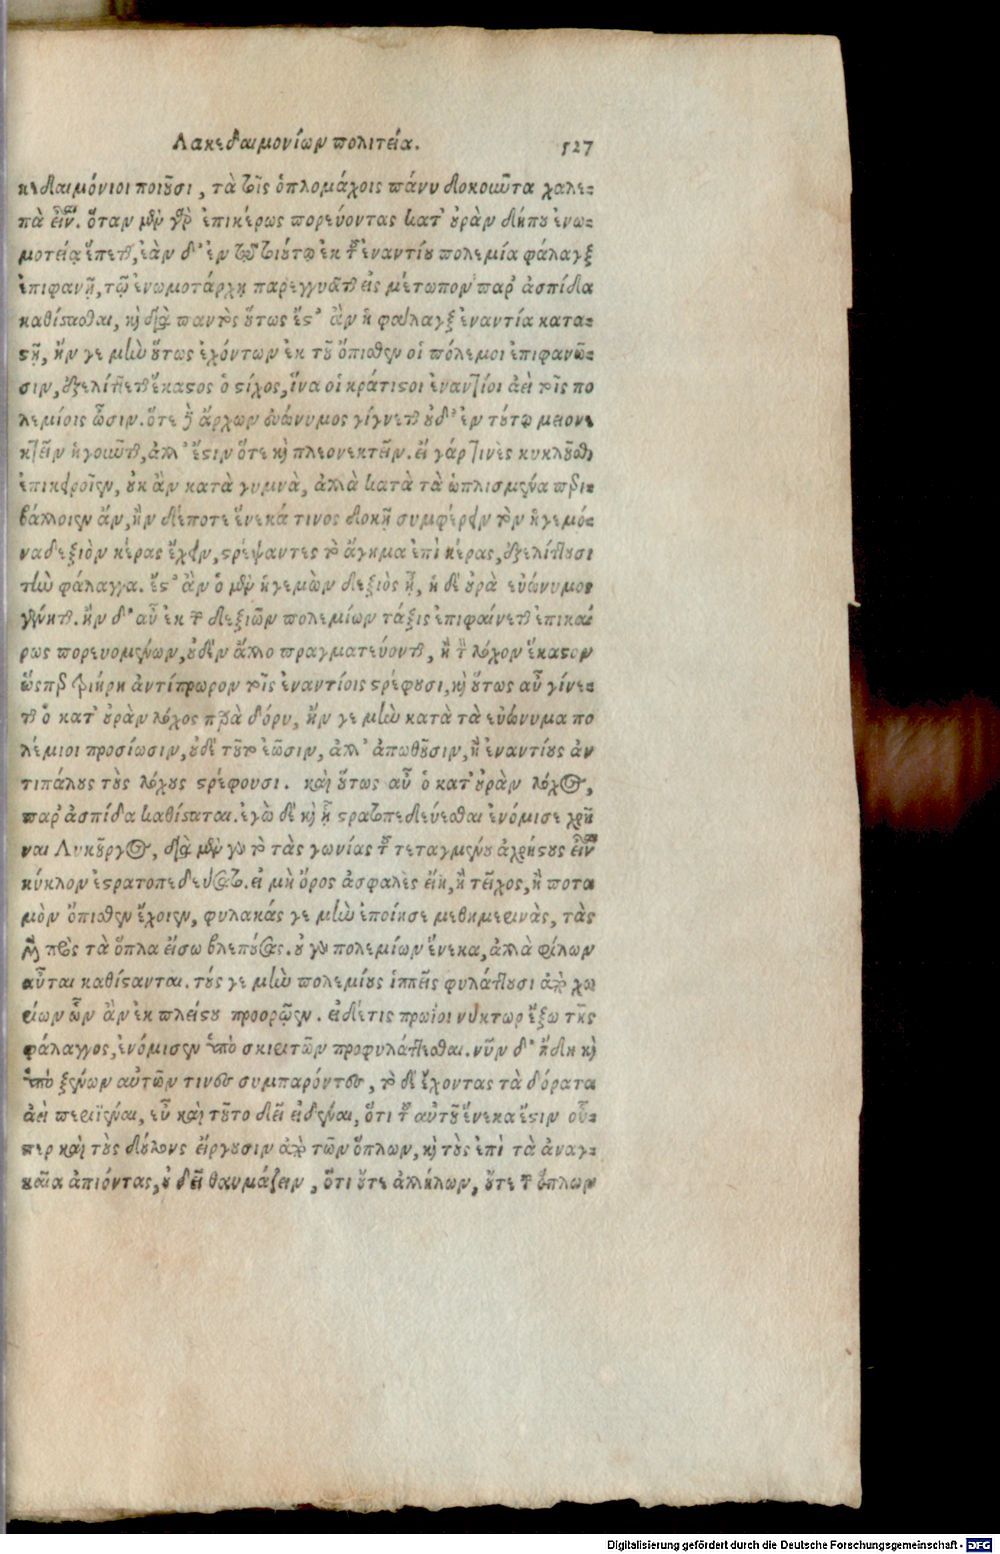 Λακεδαιμονίων πολιτεία. 527
κεδαιμόνιοι ποιοῦσι, τὰ τοῖς ὁπλομάχοις πάνυ δοκοῦντα χαλε=
πὰ εἶναι. ὅταν μὲν γὰρ ἐπικέρως πορεύονται κατ' οὐρὰν δήπου ἐνω=
μοτεία ἕπεται, ἐὰν δ' ἐν τῷ τοιούτῳ ἐκ τοῦ ἐναντίου πολεμία φάλαγξ
ἐπιφανῇ, τῷ ἐνωμοτάρχῃ παρεγγυᾶται εἰς μέτωπον παρ' ἀσπίδα
καθίστασθαι, καὶ διὰ παντὸς οὕτως ἔστ' ἂν ἡ φάλαγξ ἐναντία κατα=
στῇ, ἤν γε μὴν οὕτως ἐχόντων ἐκ τοῦ ὄπισθεν οἱ πόλεμοι ἐπιφανῶ=
σιν, ἐξελίττεται ἕκαστος ὁ στίχος, ἵνα οἱ κράτιστοι ἐναντίοι ἀεὶ τοῖς πο
λεμίοις ὦσιν. ὅτε δὲ ἄρχων εὐώνυμος γίγνεται οὐδ' ἐν τούτῳ μειονε
κτεῖν ἡγοῦνται, ἀλλ' ἔστιν ὅτε καὶ πλεονεκτεῖν. εἰ γάρ τινὲς κυκλοῦσθαι
ἐπιχειροῖεν, οὐκ ἂν κατὰ γυμνὰ, ἀλλὰ κατὰ τὰ ὡπλισμένα περι=
βάλλοιεν ἄν, ἢν δέ ποτε ἕνεκά τινος δοκῇ συμφέρειν τὸν ἡγεμό=
να δεξιὸν κέρας ἔχειν, στρέψαντες τὸ ἄγημα ἐπὶ κέρας, ἐξελίττουσι
τὴν φάλαγγα. ἔστ' ἂν ὁ μὲν ἡγεμὼν δεξιὸς ᾖ, ἡ δὲ οὐρὰ εὐώνυμος
γένηται. ἢν δ' αὖ ἐκ τῶν δεξιῶν πολεμίων τάξις ἐπιφαίνεται ἐπικαί
ρως πορευομένων, οὐδὲν ἄλλο πραγματεύονται, ἢ τὸν λόχον ἕκαστον
ὥσπερ τριήρη ἀντίπρωρον τοῖς ἐναντίοις στρέφουσι, καὶ οὕτως αὖ γίνε=
ται ὁ κατ' οὐρὰν λόχος παρὰ δόρυ, ἤν γε μὴν κατὰ τὰ εὐώνυμα πο
λέμιοι προσίωσιν, οὐδὲ τοῦτο ἐῶσιν, ἀλλ' ἀπωθοῦσιν, ἢ ἐναντίους ἀν
τιπάλους τοὺς λόχους στρέφουσι. καὶ οὕτως αὖ ὁ κατ' οὐρὰν λόχος,
παρ' ἀσπίδα καθίσταται. ἐγὼ δὲ καὶ ᾗ στρατοπεδεύεσθαι ἐνόμισε χρῆ
ναι Λυκοῦργος, διὰ μὲν γὰρ τὸ τὰς γωνίας τοῦ τεταγμένου ἀχρήστους εἶναι
κύκλον ἐστρατοπεδεύσατο. εἰ μὴ ὄρος ἀσφαλὲς εἴη, ἢ τεῖχος, ἢ ποτα
μὸν ὄπισθεν ἔχοιεν, φυλακάς γε μὴν ἐποίησε μεθημερινὰς, τὰς
μὲν πρὸς τὰ ὅπλα εἴσω βλεπούσας. οὐ γὰρ πολεμίων ἕνεκα, ἀλλὰ φίλων
αὗται καθίστανται. τούς γε μὴν πολεμίους ἱππεῖς φυλάττουσι ἀπὸ χω
ρίων ὧν ἂν ἐκ πλείστου προορῷεν. εἰ δέ τις προίοι νύκτωρ ἔξω τῆς
φάλαγγος, ἐνόμισεν ὑπὸ σκιριτῶν προφυλάττεσθαι. νῦν δ' ἤδη καὶ
ὑπὸ ξένων αὐτῶν τινες συμπαρόντες, τὸ δὲ ἔχοντας τὰ δόρατα
ἀεὶ περιϊέναι, εὖ καὶ τοῦτο δεῖ εἰδέναι, ὅτι τοῦ αὐτοῦ ἕνεκα ἔστιν οὗ=
περ καὶ τοὺς δούλους εἴργουσιν ἀπὸ τῶν ὅπλων, καὶ τοὺς ἐπὶ τὰ ἀναγ=
καῖα ἀπιόντας, οὐ δεῖ θαυμάζειν, ὅτι οὔτε ἀλλήλων, οὔτε τῶν ὅπλων
Digitalisierung gefördert durch die Deutsche Forschungsgemeinschaft - DFG